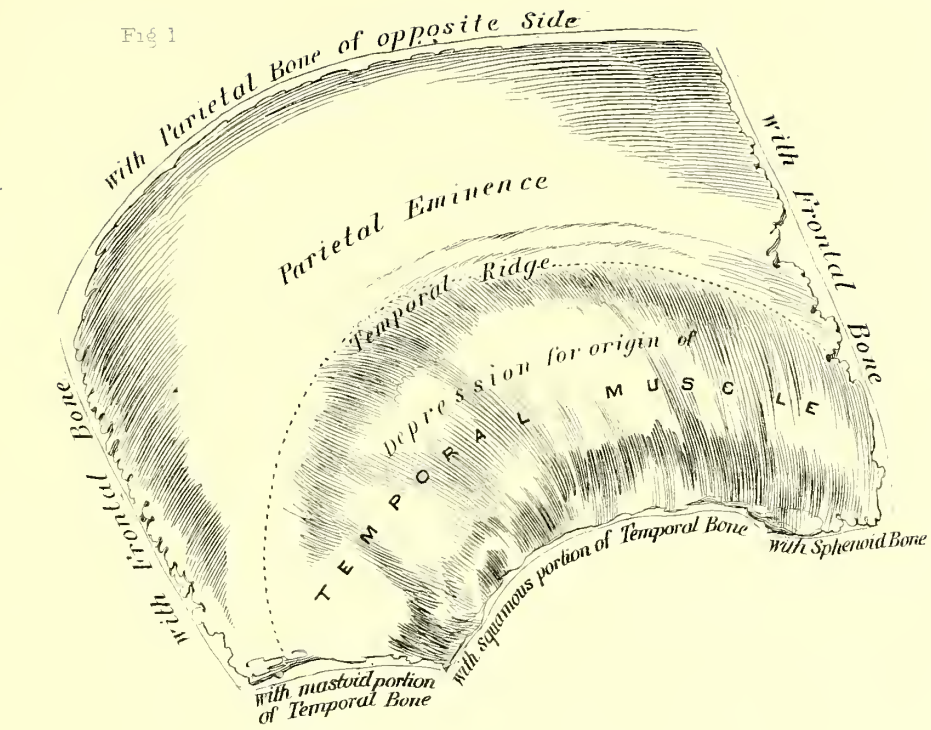 Fig 1
with Parietal Bone of opposite Side
with Frontal Bone
Parietal Eminence
Temporal Ridge
Depression for origin of
TEMPORAL MUSCLE
with Frontal Bone
with squamous portion of Temporal Bone
with Sphenoid Bone
with mastoid portion
of Temporal Bone